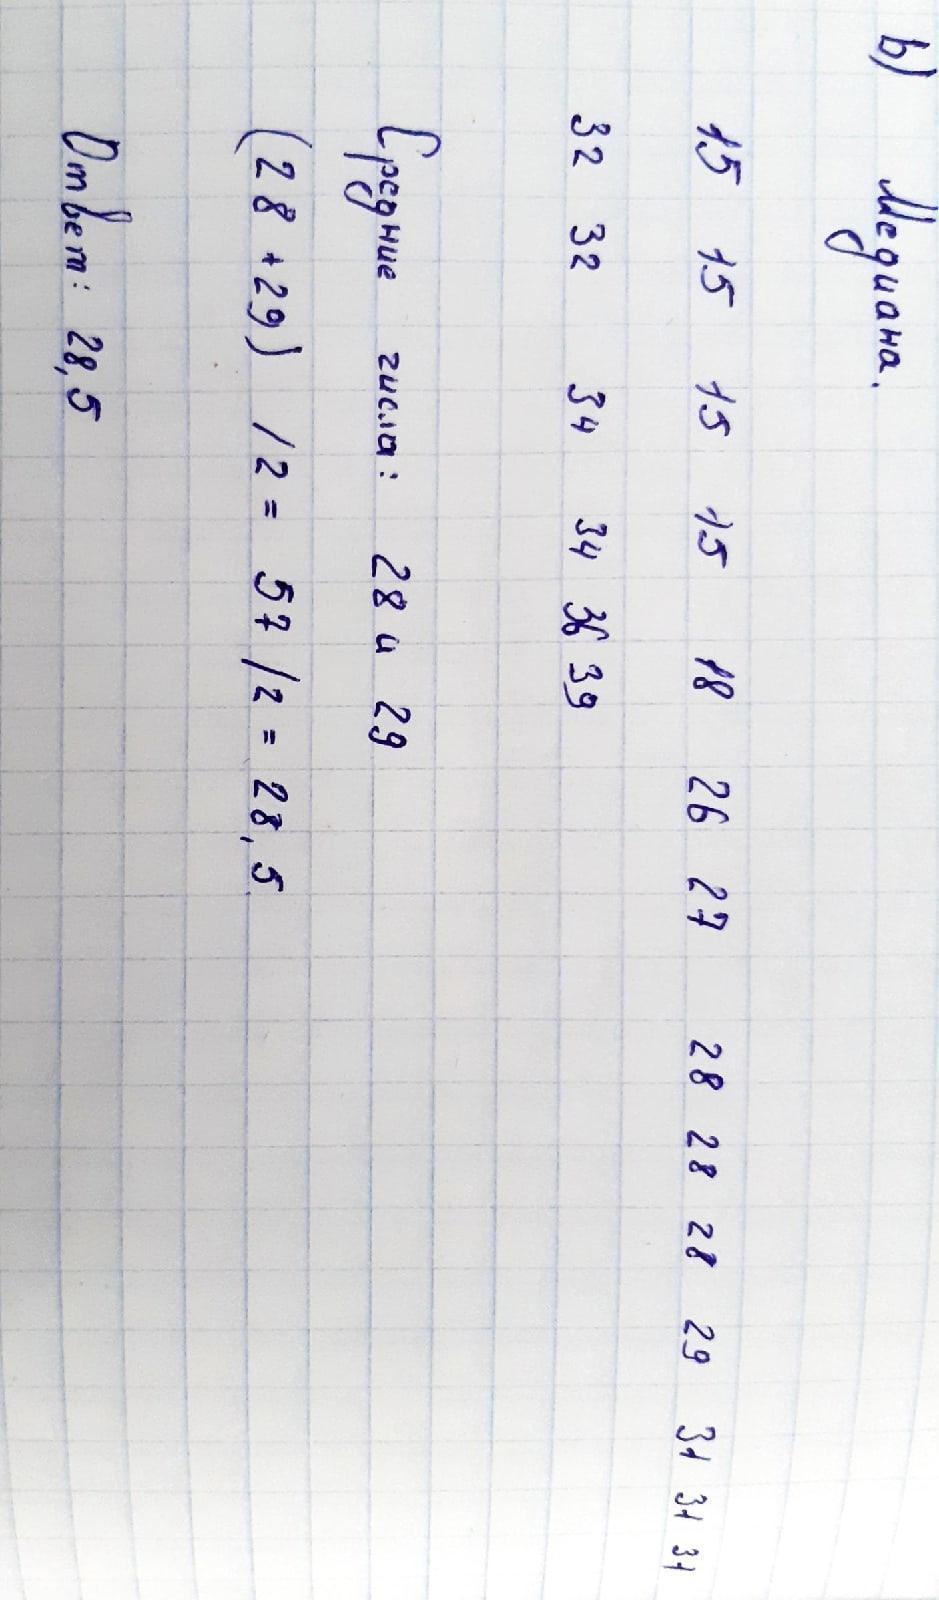 b) Медиана.
15 15 15 15 18 26 27 28 28 28 29 31 31 31
32 32 34 34 36 39
Средние числа: 28 и 29
(28 + 29) /2 = 57/2 = 28,5
Ответ: 28,5